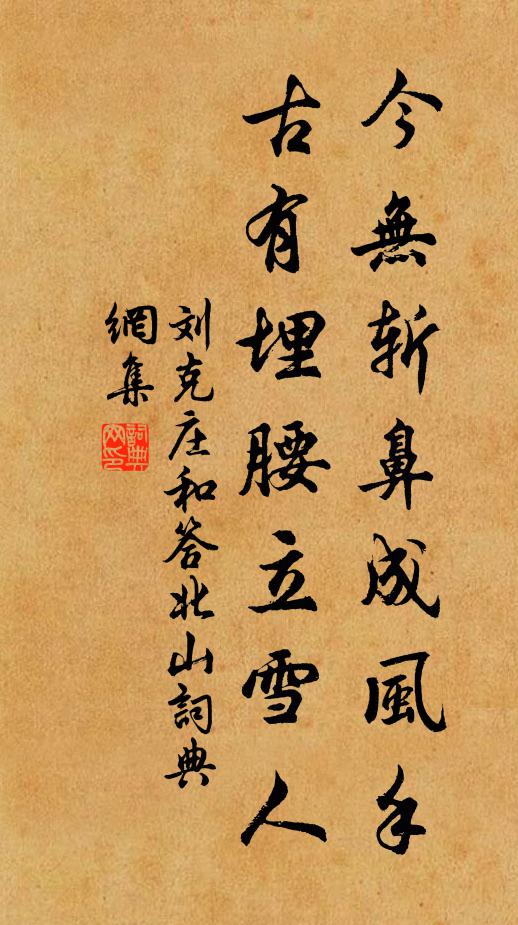 今無斬鼻成風手
古有埋腰立雪人
刘克庄和答北山詞典
網集
詞典
网印